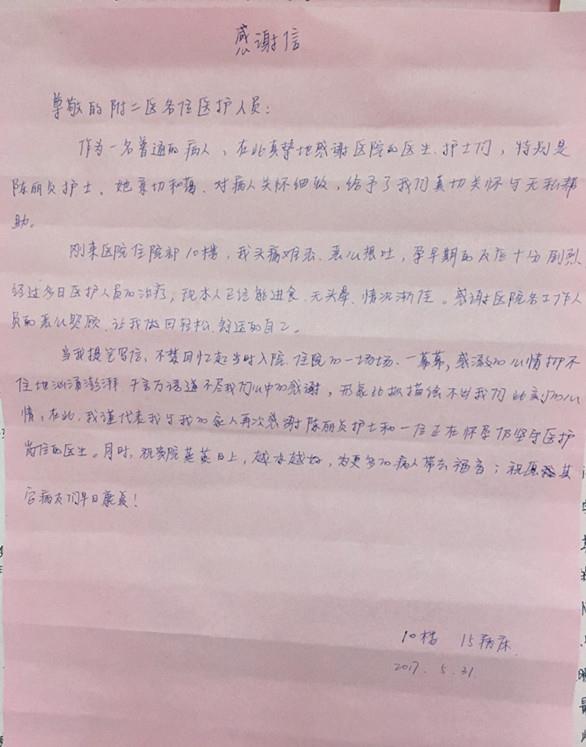 感谢信
尊敬的附二医各位医护人员:
作为一名普通的病人,在此真挚地感谢医院的医生、护士们,特别是
陈丽贞护士。她亲切和蔼、对病人关怀细致,给予了我们真切关怀与无私帮
助。
刚来医院住院部10楼,我头痛难忍、恶心想吐,孕早期的反应十分剧烈
经过多日医护人员的治疗,现本人已经能进食、无头晕、情况渐佳。感谢医院各工作人
员的悉心照顾,让我做回轻松、舒适的自己。
当我提笔写信,不禁回忆起当时入院、住院的一场场、一幕幕,感激的心情抑不
住地汹涌澎湃 千言万语道不尽我们心中的感谢,形象比拟描绘不出我们此刻的心
情,在此,我谨代表我与我的家人再次感谢陈丽贞护士和一位正在怀孕仍坚守医护
岗位的医生。同时,祝贵院蒸蒸日上,越来越好,为更多的病人带去福音;祝愿其
它病友们早日康复!
10楼 15病床
2017.5.31